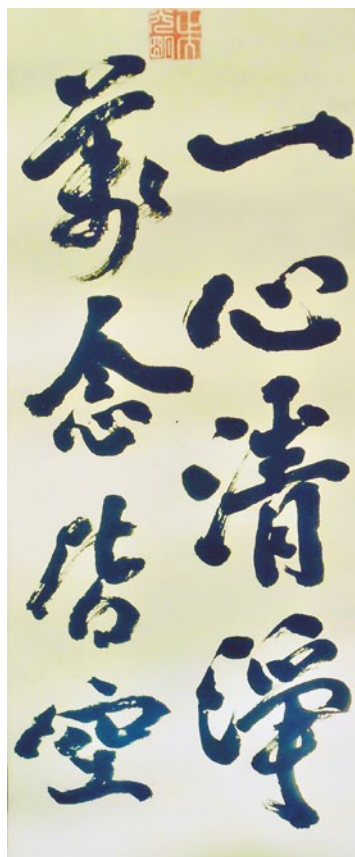 一心清淨
萬念皆空